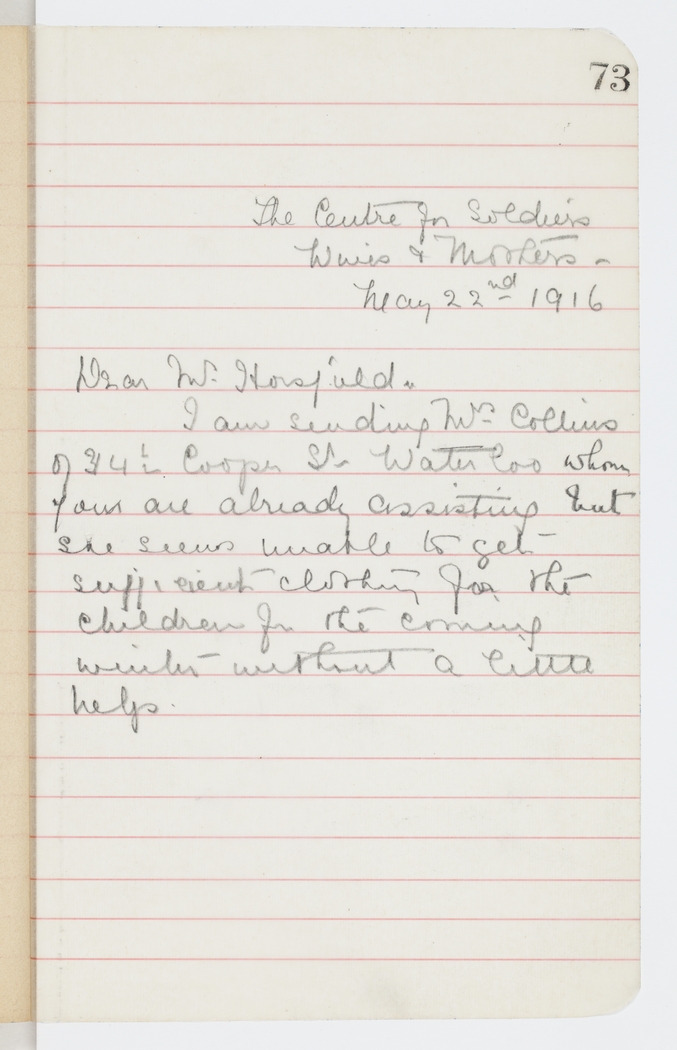 73
The Centre for Soldiers
Wives & Mothers -
May 22nd 1916
Dear Mr. Horsfield.
I am sending Mrs Collins
of 34 Cooper St Waterloo whom
you are already assisting but
she seems unable to get
sufficient clothing for the
children for the coming
winter without a little
help.